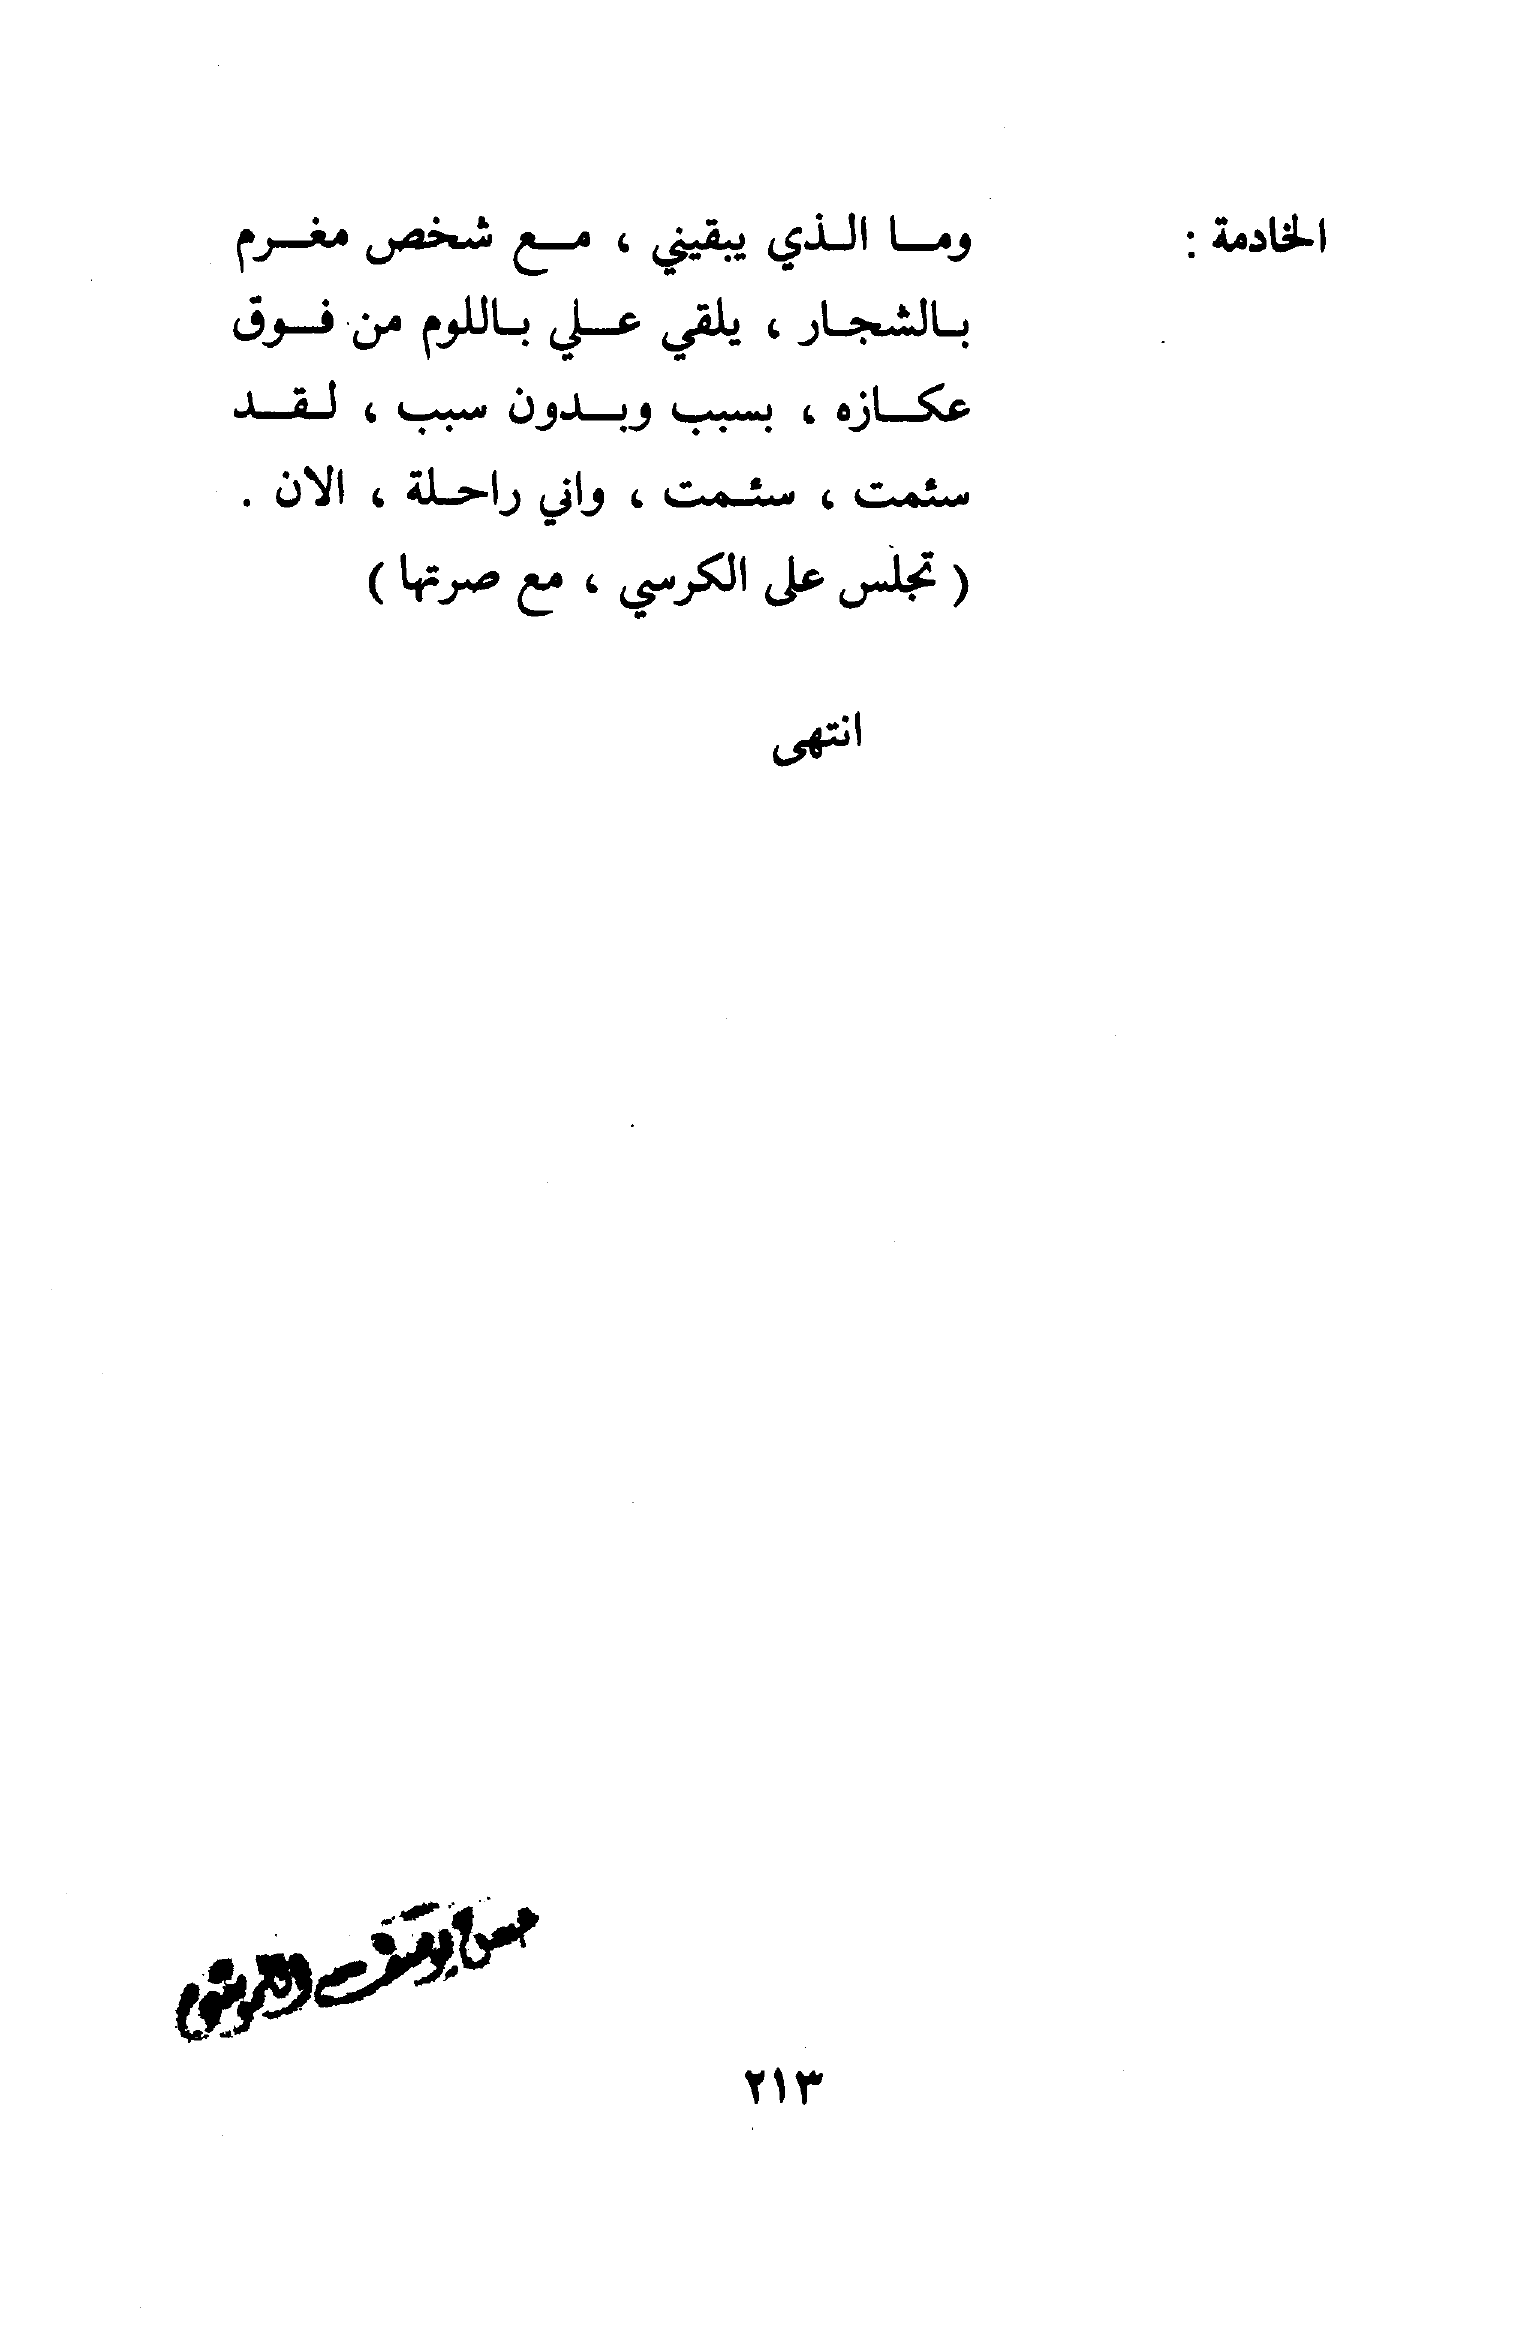 الخادمة : وما الذي يبقيني ، مع شخص مغرم
بالشجار ، يلقي علي باللوم من فوق
عكازه ، بسبب وبدون سبب ، لقد
سئمت ، سئمت ، واني راحلة ، الان .
( تجلس على الكرسي ، مع صرتها )
انتهى
يوسف
٢١٣